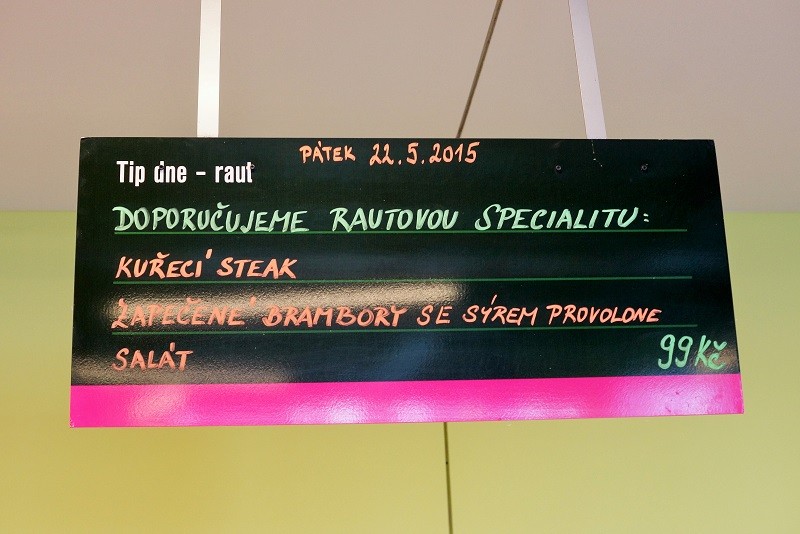 PÁTEK 22.5.2015
Tip dne - raut
DOPORUČUJEME RAUTOVOU SPECIALITU:
KUŘECÍ STEAK
ZAPEČENÉ BRAMBORY SE SÝREM PROVOLONE
SALÁT 99 Kč